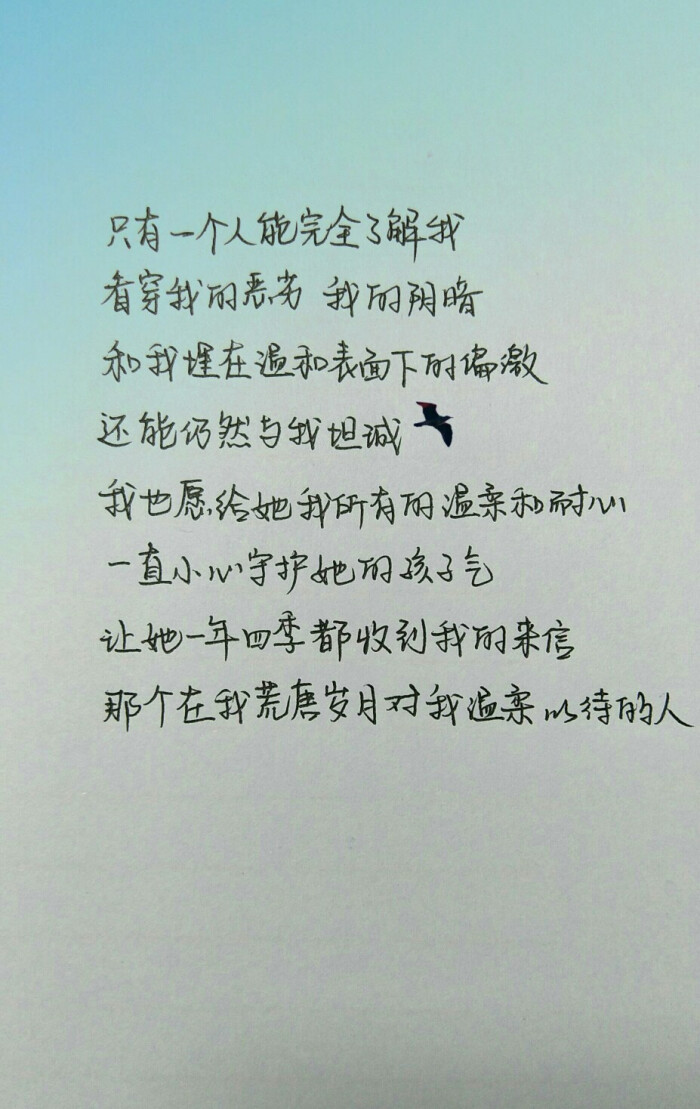 只有一个人能完全了解我
看穿我的恶劣 我的阴暗
和我埋在温和表面下的偏激
还能仍然与我坦诚
我也愿给她我所有的温柔和耐心
一直小心守护她的孩子气
让她一年四季都收到我的来信
那个在我荒唐岁月对我温柔以待的人